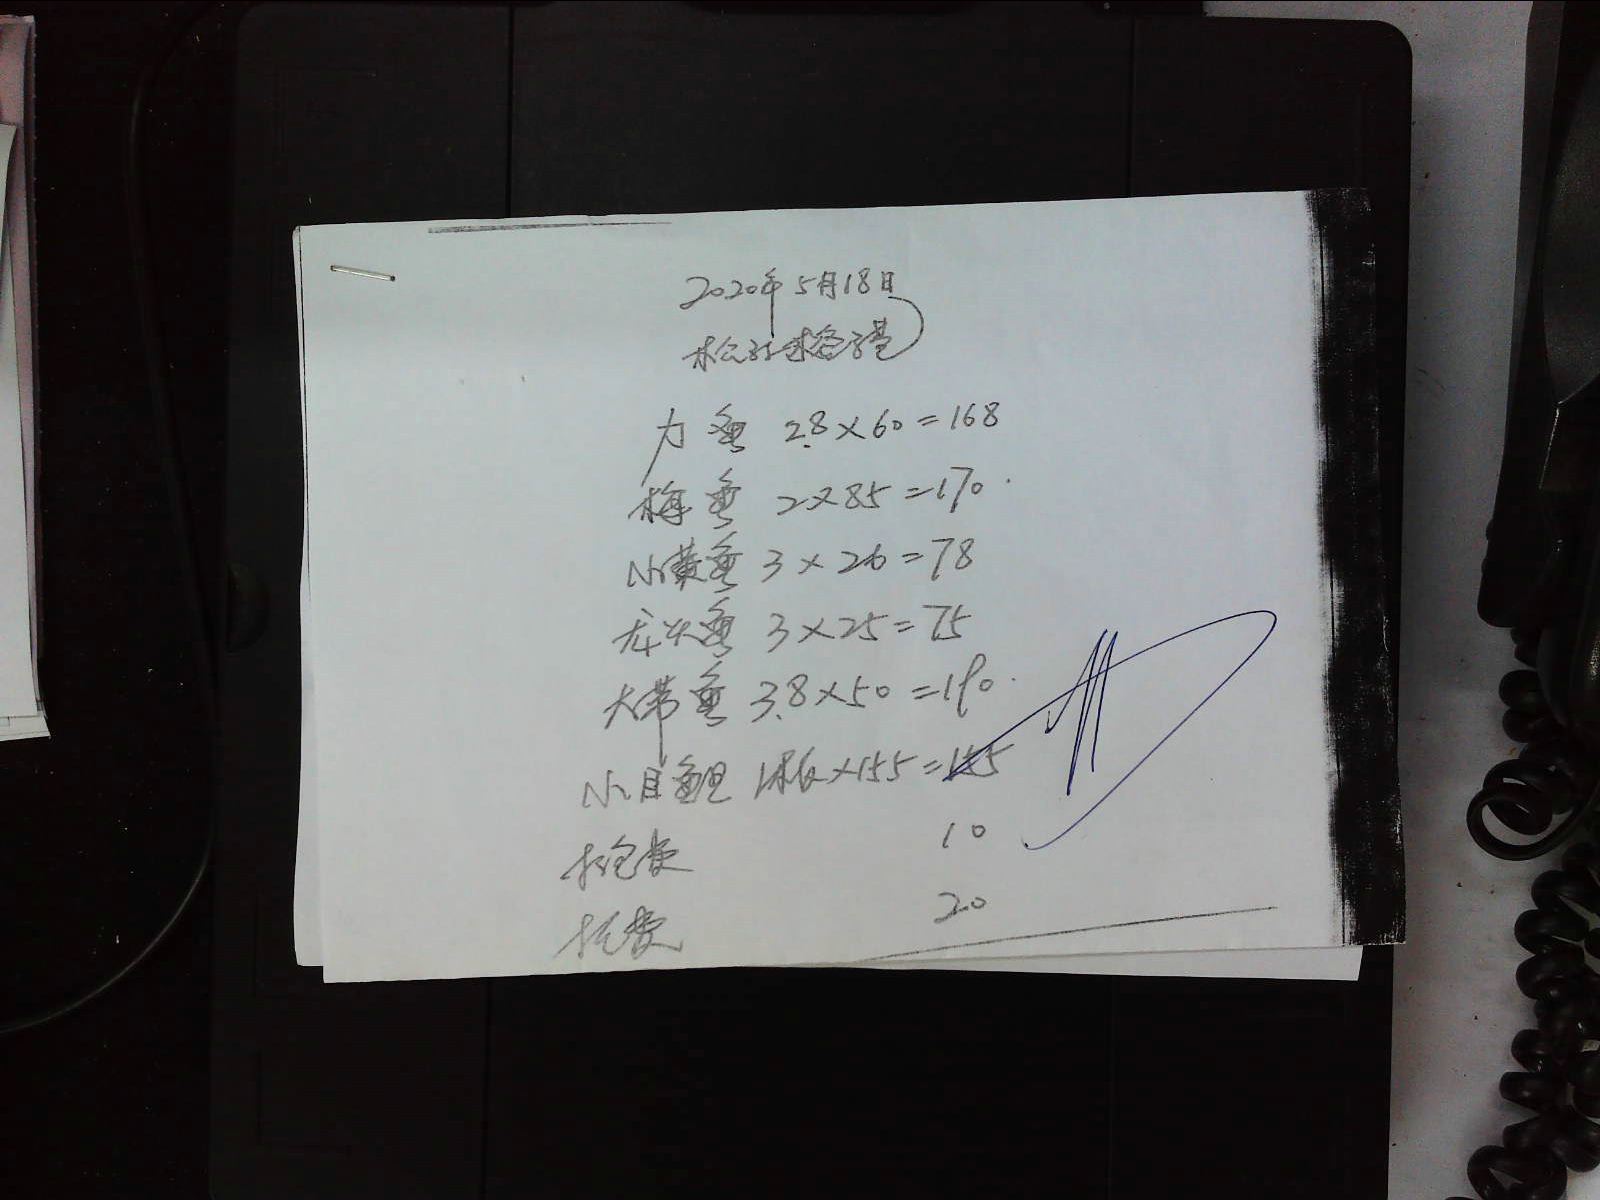 2020年5月18日
力鱼 2.8×60=168
梅鱼 2×85=170
小黄鱼 3×26=78
龙头鱼 3×25=75
大带鱼 3.8×50=190
小目鱼 1板×155=155
打包费 10
托费 20